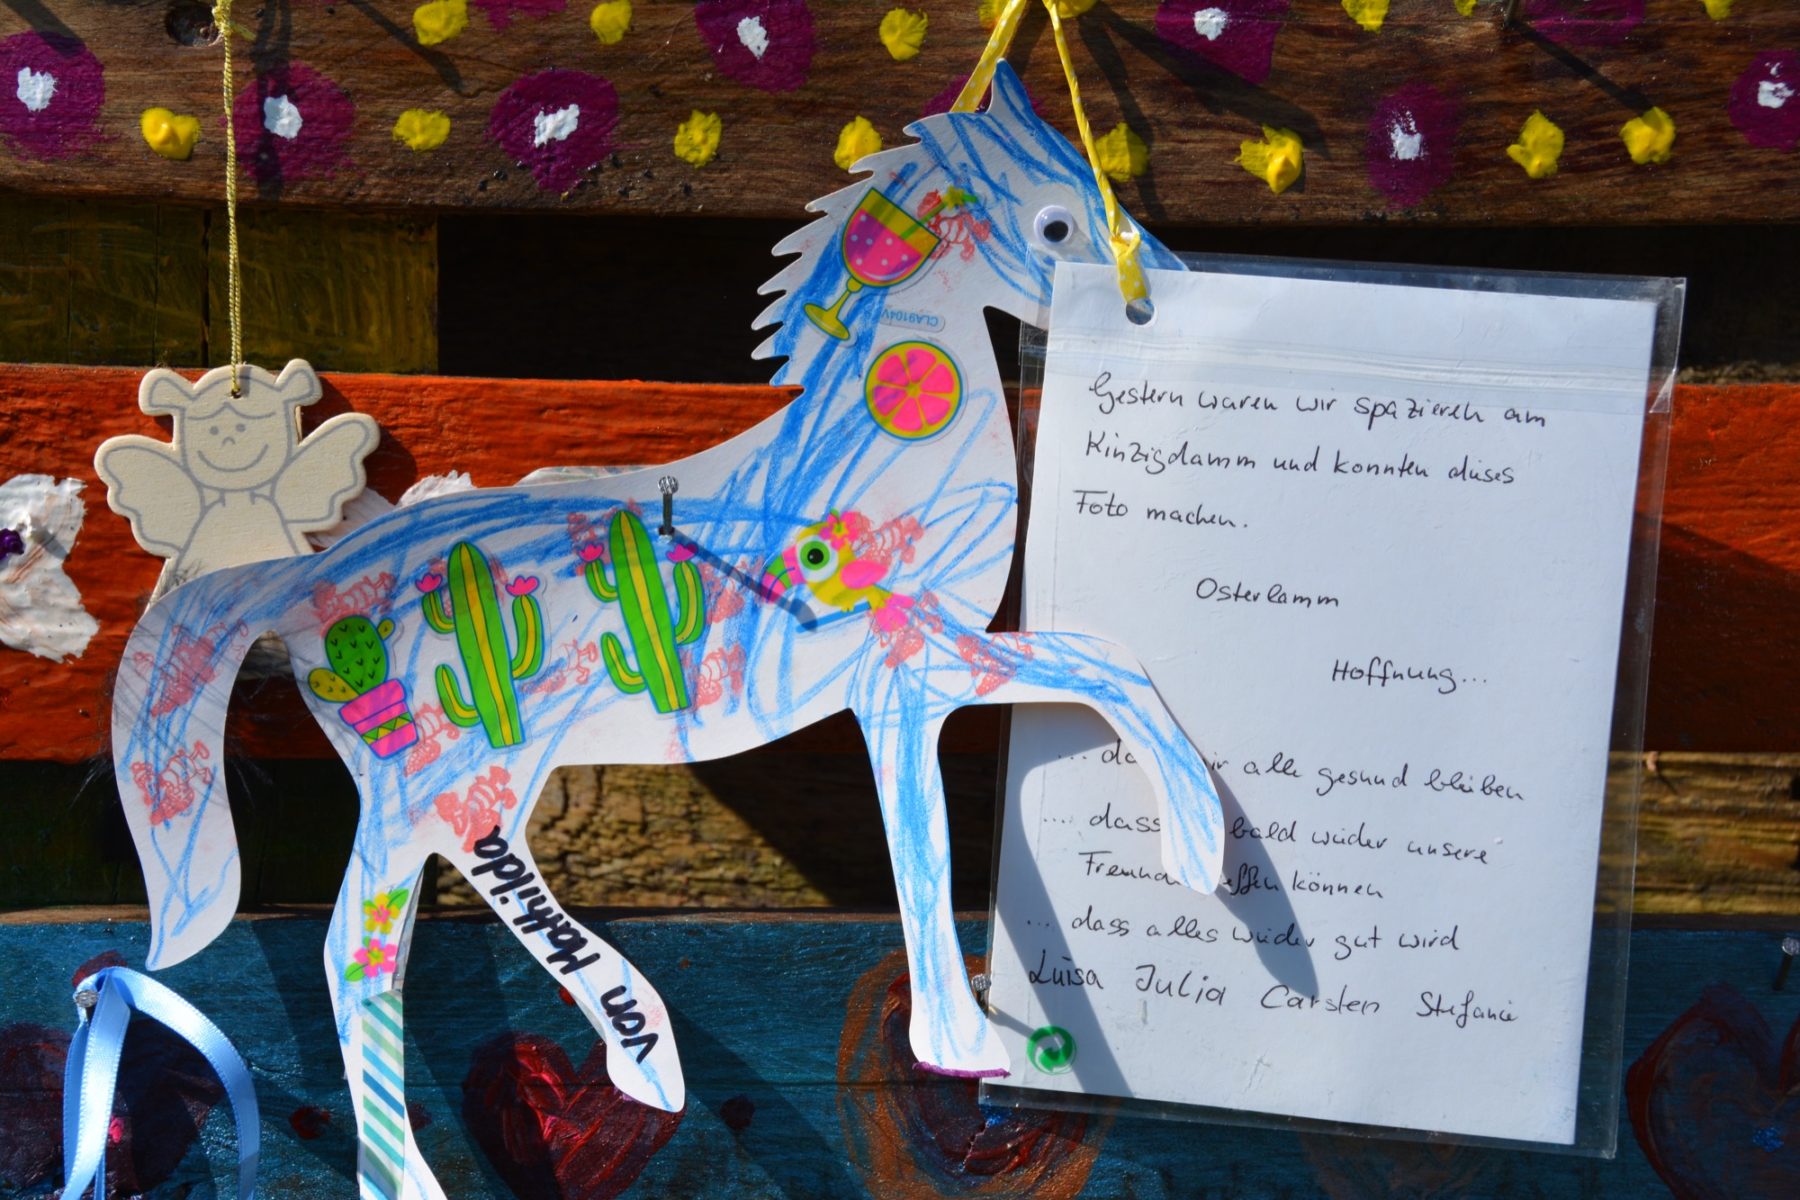 Gestern waren wir spazieren am
Kinzigdamm und konnten dieses
Foto machen.
Osterlamm
Hoffnung...
... wir alle gesund bleiben
.... dass bald wieder unsere
Freunde treffen können
... dass alles wieder gut wird
Luisa Julia Carsten Stefanie
von Mathilda